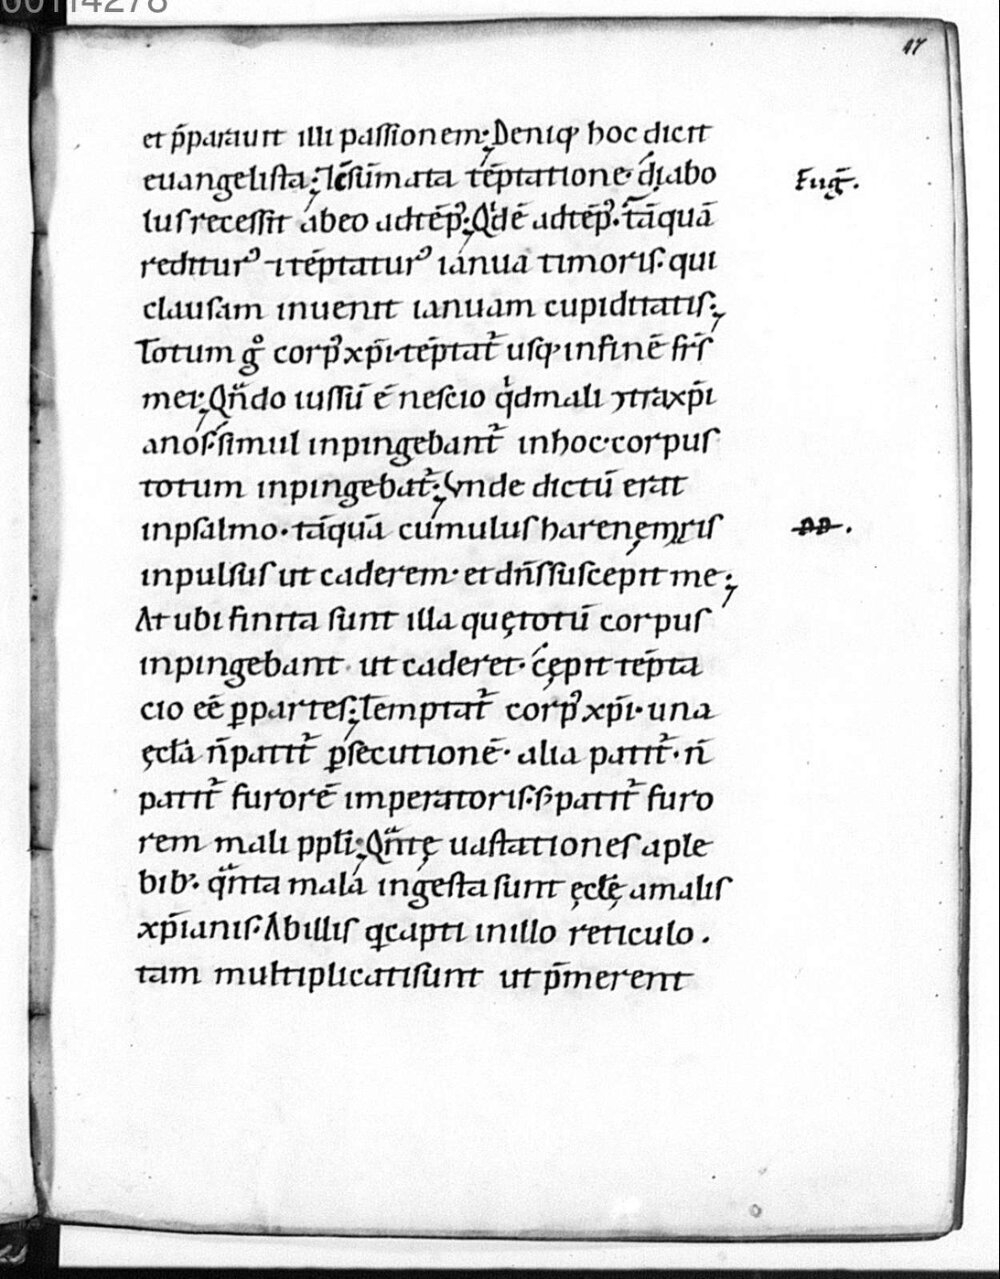 00114278
47
et p̄parauit illi passionem; Deniq; hoc dicit
euangelista; C̄sūmata tēptatione diabo
lus recessit ab eo ad tēp᾽; Qđ ē ad tēp᾽. tāquā
reditur᾽ ⁊ itēptatur᾽ ianua timoris. qui
clausam inuenit ianuam cupiditatis;
Totum g̊ corp᾽ xp̄i tēptat᾽ usq; in finē. frīs
mei; Qn̄do iussū ē nescio qd mali ↄtra xp̄i
anos. simul inpingebant᾽ in hoc. corpus
totum inpingebat᾽; Vnde dictū erat
in psalmo. tāquā cumulus harenę mris
inpulsus ut caderem. et dn̄s suscepit me;
At ubi finita sunt illa quę totū corpus
inpingebant. ut caderet. cępit tēpta
cio eē p̱ partes; Temptat᾽ corp᾽ xp̄i. una
ęctā n̄ patit᾽ p̱secutionē. alia patit᾽. n̄
patit᾽ furorē imperatoris. s; patit᾽ furo
rem mali pp̄li; Qn̄tę uastationes a ple
bib᾽. qn̄ta mala ingesta sunt ęctę a malis
xp̄ianis. Ab illis q capti in illo reticulo.
tam multiplicati sunt ut p̄merent
Eug̅.